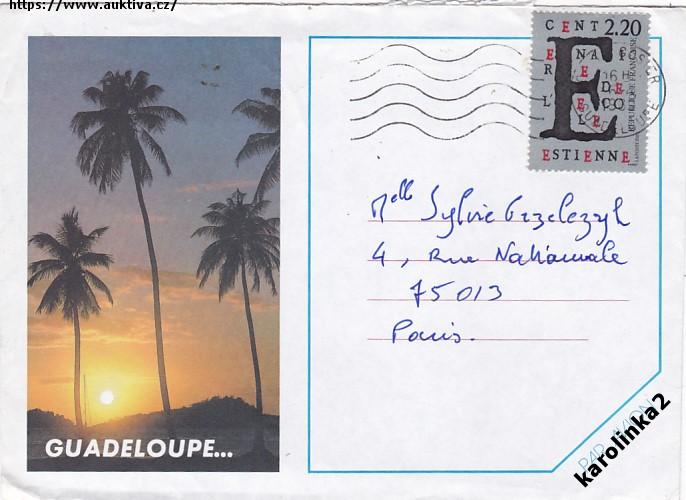 https://www.auktiva.cz/
CENT 2.20
ENAI
RE
DE
L'ECO
LE
ESTIENNE
REPUBLIQUE FRANÇAISE
Melle Sylvie
4, Rue Nationale
75013
Paris.
GUADELOUPE...
PAR AVION
karolinka2